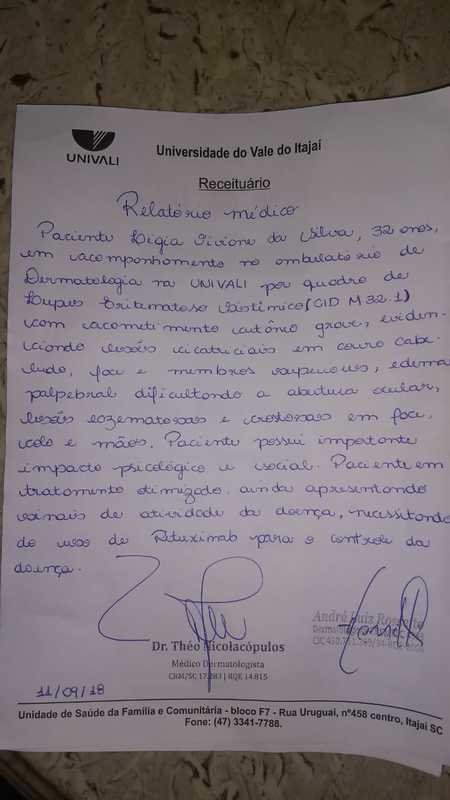 UNIVALI
Universidade do Vale do Itajaí
Receituário
Relatório médico
Paciente Ligia Viviane da Silva, 32 anos,
em acompanhamento no ambulatório de
Dermatologia na UNIVALI por quadro de
Lupus Eritematoso Sistêmico (CID M 32.1)
com acometimento cutâneo grave, eviden-
ciando lesões cicatriciais em couro cabe-
ludo, face e membros superiores, edema
palpebral dificultando a abertura ocular,
lesões eczematosas e crostosas em face,
colo e mãos. Paciente possui importante
impacto psicológico e social. Paciente em
tratamento otimizado, ainda apresentando
sinais de atividade da doença, necessitando
do uso de Rituximab para o controle da
doença.
Dr. Théo Nicolacópulos
Médico Dermatologista
CRM/SC 17.283 | RQE 14.815
André Luiz
11/09/18
Unidade de Saúde da Família e Comunitária - bloco F7 - Rua Uruguai, nº458 centro, Itajaí SC
Fone: (47) 3341-7788.